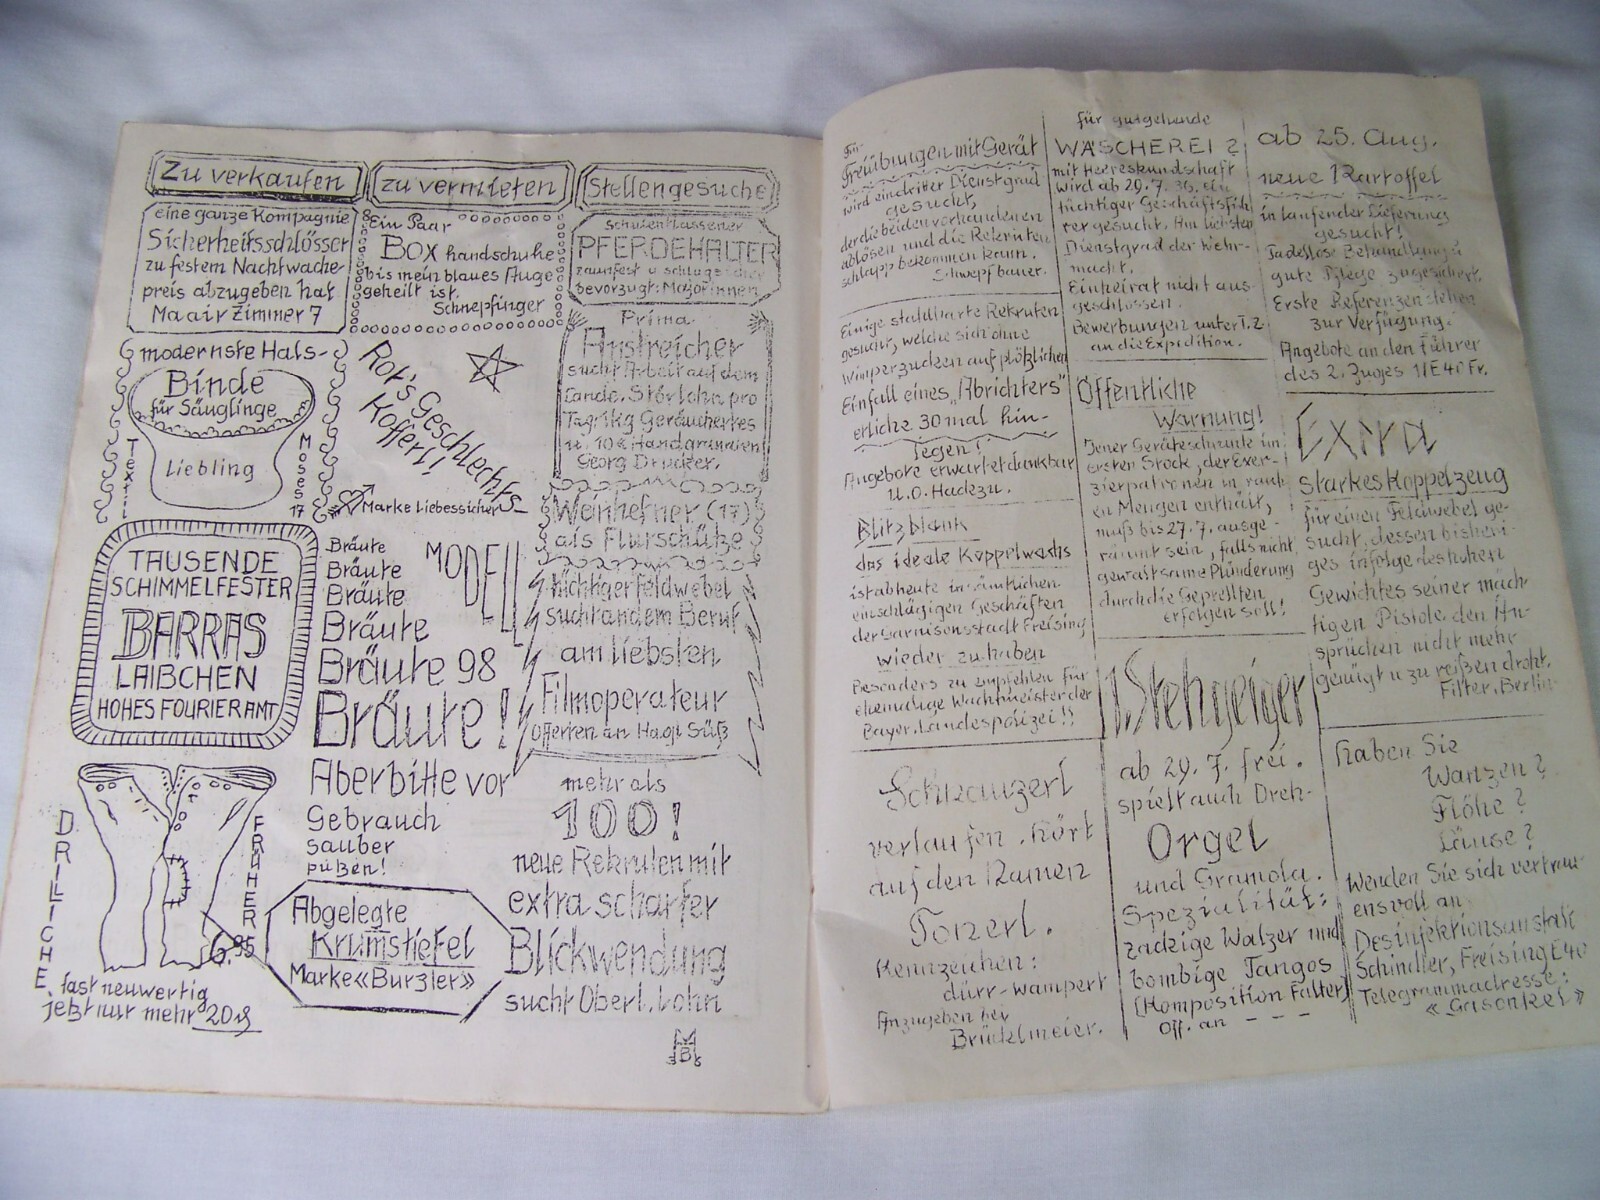 Zu verkaufen
eine ganze Kompagnie
Sicherheitsschlösser
zu festem Nachtwache-
preis abzugeben hat
Maair Zimmer 7
zu vermieten
Ein Paar
Box handschuhe
bis mein blaues Auge
geheilt ist.
Schnepfinger
Stellengesuche
Schulentlassener
PFERDEHALTER
zaunfest u. schlagsicher
bevorzugt: Majorinnen
modernste Hals-
Binde
für Säuglinge
Liebling
Textil
Moses 17
Rot's Geschlechts-
Kofferl!
Marke Liebessicher
Prima
Anstreicher
sucht Arbeit auf dem
Lande. Störlohn pro
Tag 1kg Geräuchertes
u. 10 Handgranaten
Georg Drucker.
Weinkenner (17)
als Flurschütze
TAUSENDE
SCHIMMELFESTER
BARRAS
LAIBCHEN
HOHES FOURIERAMT
Bräute
Bräute
Bräute
Bräute
Bräute 98
Bräute!
MODELL
Aber bitte vor
Gebrauch
sauber
putzen!
tüchtiger Feldwebel
sucht andern Beruf
am liebsten
Filmoperateur
Offerten an Hagl Süß
DRILICHE
FRÜHER
6.95
fast neuwertig
jetzt nur mehr 20
Abgelegte
Krumstiefel
Marke «Burzler»
mehr als
100!
neue Rekruten mit
extra scharfer
Blickwendung
sucht Oberl. Lohn
MB
Für
Freiübungen mit Gerät
wird ein dritter Dienstgrad
gesucht,
der die beiden vorhandenen
ablösen und die Rekruten
schlapp bekommen kann.
Schwepfbauer.
Einige standharte Rekruten
gesucht, welche sich ohne
Wimperzucken auf plötzlichen
Einfall eines "Abrichters"
etliche 30 mal hin-
legen!
Angebote erwartet dankbar
U.O. Hadezu.
Blitzblank
das ideale Koppelwachs
ist ab heute in sämtlichen
einschlägigen Geschäften
der Garnisonsstadt Freising
wieder zu haben
Besonders zu empfehlen für
ehemalige Wachtmeister der
Bayer. Landespolizei!!
Schnauzerl
verlaufen. hört
auf den Namen
Tonzerl.
Kennzeichen:
dürr-wampert
Anzugeben bei
Brücklmeier.
für gutgehende
WÄSCHEREI?
mit Heereskundschaft
wird ab 29.7.36. ein
tüchtiger Geschäftsfüh
rer gesucht. Am liebsten
Dienstgrad der Wehr-
macht.
Einheirat nicht aus-
geschlossen.
Bewerbungen unter I.2
an die Expedition.
Öffentliche
Warnung!
Jener Geräteschrank im
ersten Stock, der Exer-
zierpatronen in rauh
en Mengen enthält,
muß bis 27.7. ausge-
räumt sein, falls nicht
gewaltsame Plünderung
durch die Geprellten
erfolgen soll!
1. Stehgeiger
ab 29.7. frei.
spielt auch Dreh-
Orgel
und Granola.
Spezialität:
zackige Walzer und
bombige Tangos
(Komposition Falter)
Off. an - - -
ab 25. Aug.
neue Kartoffel
in laufender Lieferung
gesucht!
Tadellose Behandlung u
gute Pflege zugesichert.
Erste Referenzen stehen
zur Verfügung.
Angebote an den Führer
des 2. Zuges 1/E 40 Fr.
Extra
starkes Koppelzeug
für einen Feldwebel ge-
sucht, dessen bisheri-
ges infolge des hohen
Gewichtes seiner mäch-
tigen Pistole den An-
sprüchen nicht mehr
genügt u. zu reißen droht.
Filter, Berlin
Haben Sie
Wanzen?
Flöhe?
Läuse?
Wenden Sie sich vertrau-
ensvoll an
Desinfektionsanstalt
Schindler, Freising E 40
Telegrammadresse:
«Grisonkel»